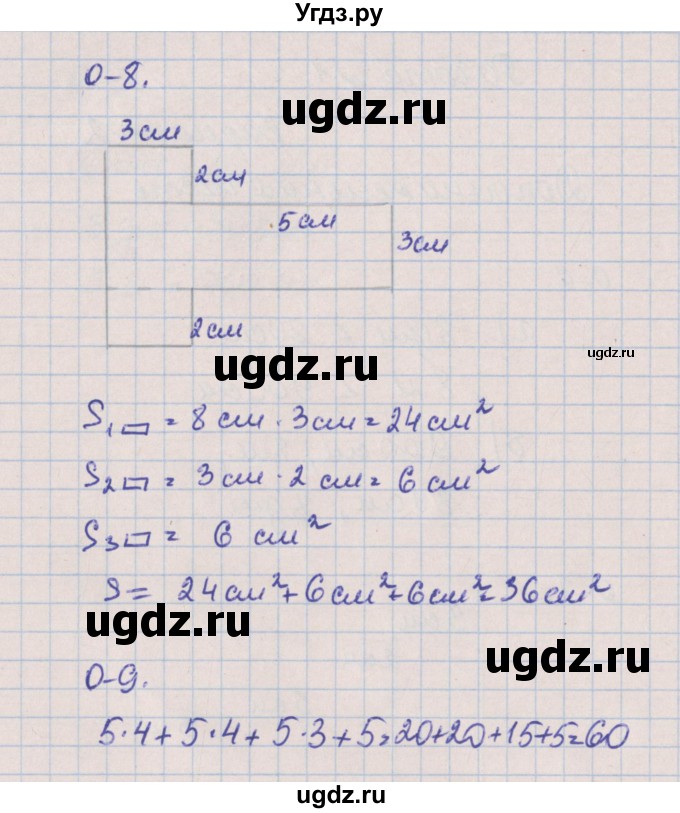 Угдз.ру
О-8.
ugdz.ru
3 см
2 см
5 см
3 см
2 см
ugdz.ru
ugdz.ru
S₁▭ = 8 см · 3 см = 24 см²
S₂▭ = 3 см · 2 см = 6 см²
S₃▭ = 6 см²
S = 24 см² + 6 см² + 6 см² = 36 см²
ugdz.ru
ugdz.ru
О-9.
5·4 + 5·4 + 5·3 + 5 = 20+20+15+5=60
ugdz.ru